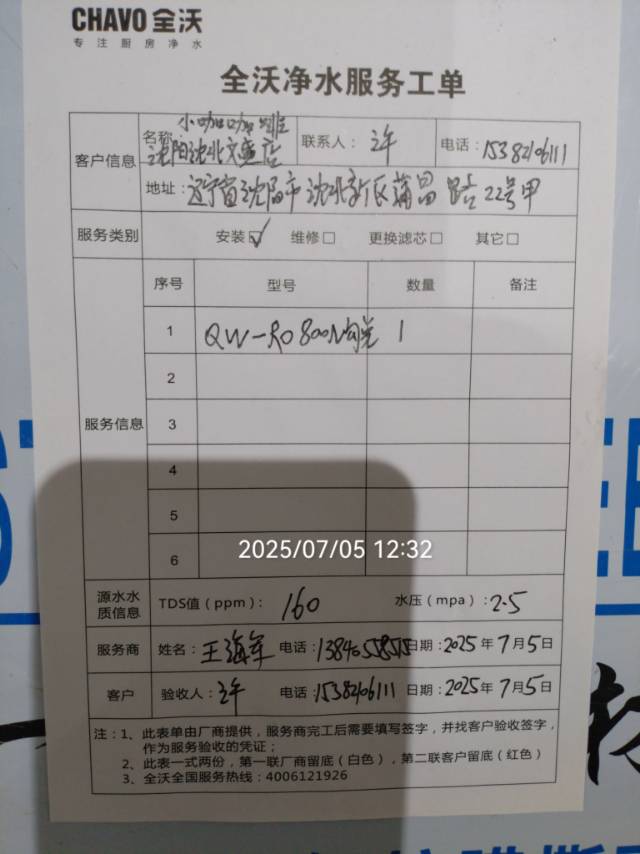 CHAVO 全沃
专注厨房净水
全沃净水服务工单
客户信息
名称 小咖咖啡
沈阳沈北文盛店
联系人：许
电话：15382106111
地址：辽宁省沈阳市沈北新区蒲昌路22号甲
服务类别 安装☑ 维修□ 更换滤芯□ 其它□
服务信息
序号 型号 数量 备注
1 QW-RO 800N 1
2
3
4
5
6
2025/07/05 12:32
源水水质信息 TDS值（ppm）：160 水压（mpa）：2.5
服务商 姓名：王海军 电话： 日期：2025年7月5日
客户 验收人：许 电话：15382106111 日期：2025年7月5日
注：1、此表单由厂商提供，服务商完工后需要填写签字，并找客户验收签字，
作为服务验收的凭证；
2、此表一式两份，第一联厂商留底（白色），第二联客户留底（红色）
3、全沃全国服务热线：4006121926